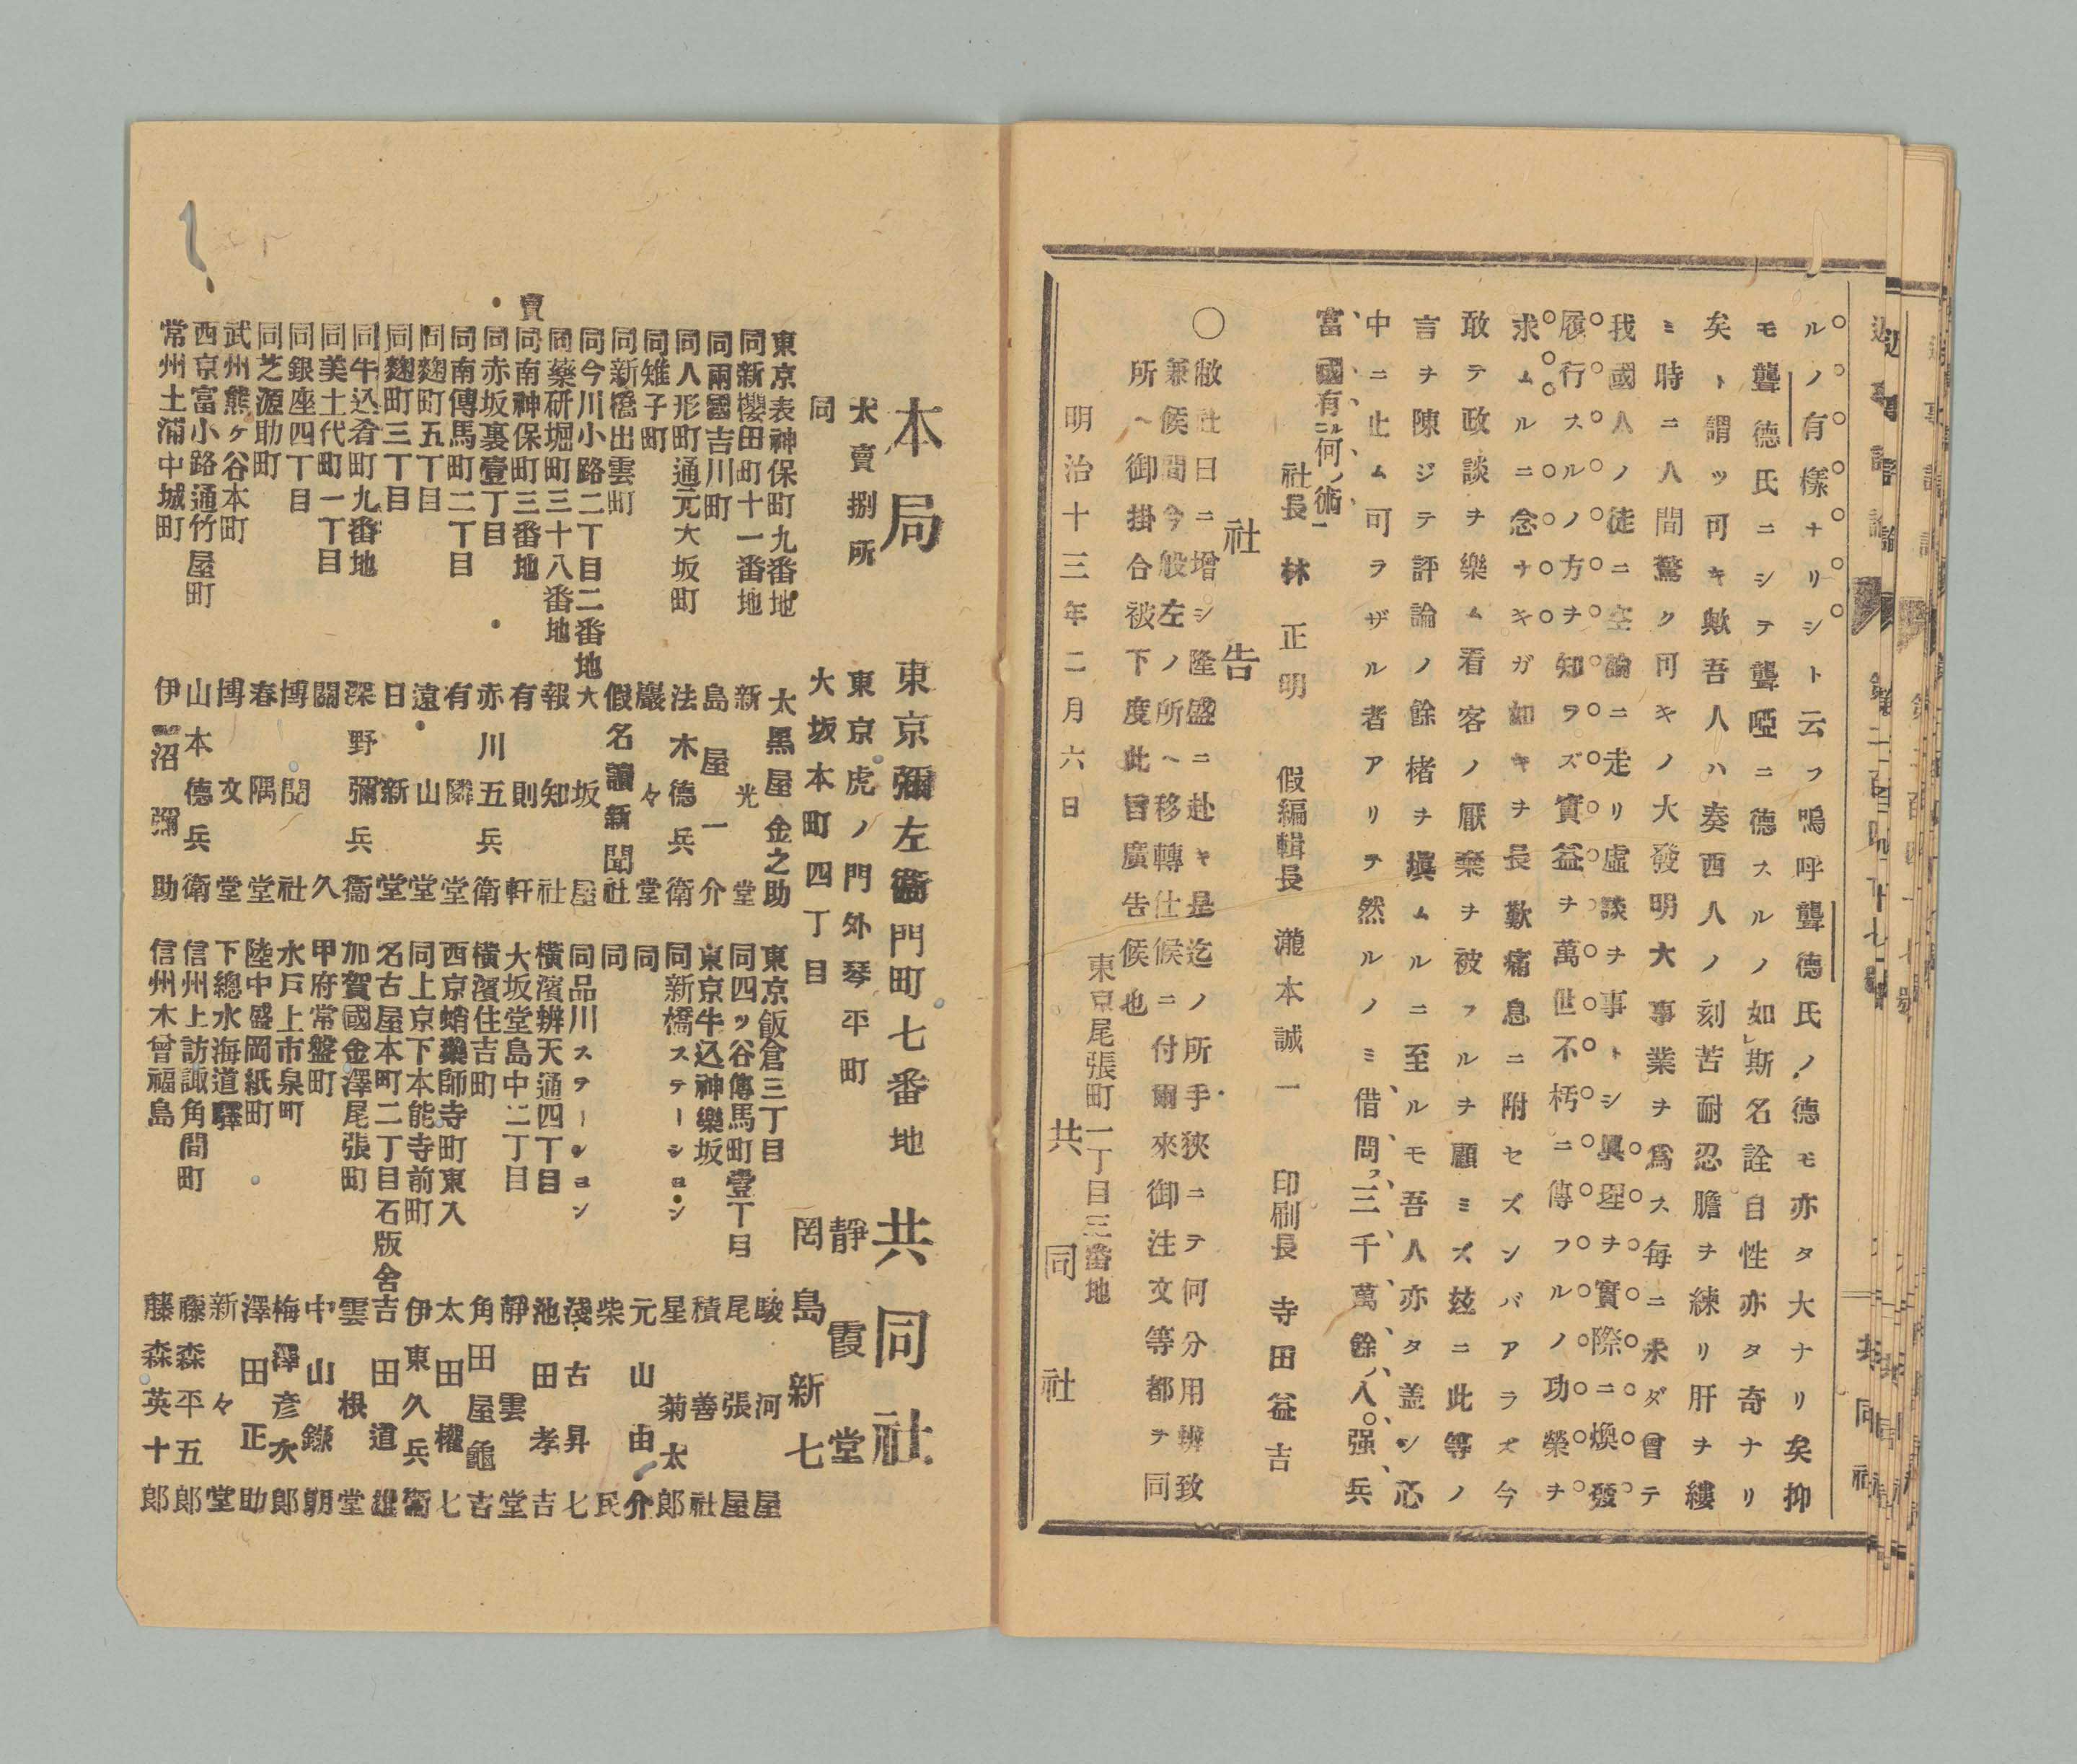 近事評論
共同社
ルノ有樣ナリシト云フ嗚呼聾德氏ノ德モ亦タ大ナリ矣抑
モ聾德氏ニシテ聾啞ニ德スルノ如斯名詮自性亦タ奇ナリ
矣ト謂ツ可キ歟吾人ハ奏西人ノ刻苦耐忍膽ヲ練リ肝ヲ縷
ミ時ニ人間驚ク可キノ大發明大事業ヲ爲ス每ニ未ダ曾テ
我國人ノ徒ニ空論ニ走リ虛談ヲ事トシ眞理ヲ實際ニ煥發
履行スルノ方ヲ知ラズ實益ヲ萬世不朽ニ傳フルノ功榮ヲ
求ムルニ念ナキガ如キヲ長歎痛息ニ附セズンバアラズ今
敢テ政談ヲ樂ム看客ノ厭棄ヲ被フルヲ顧ミズ玆ニ此等ノ
言ヲ陳ジテ評論ノ餘楮ヲ塡ムルニ至ルモ吾人亦タ盖シ心
中ニ止ム可ラザル者アリテ然ルノミ借問ス三千萬餘人强兵
富國有何ノ術
社長 林正明 假編輯長 瀧本誠一 印刷長 寺田益吉
社告
○敝社日ニ增シ隆盛ニ赴キ是迄ノ所手狹ニテ何分用辨致
兼候間今般左ノ所ヘ移轉仕候ニ付爾來御注文等都テ同
所ヘ御掛合被下度此旨廣告候也
東京尾張町一丁目三番地
明治十三年二月六日 共同社
本局 東京彌左衞門町七番地 共同社
大賣捌所 東京虎ノ門外琴平町 靜霞堂
同 大坂本町四丁目 岡島新七
賣
東京表神保町九番地 太黑屋金之助
同新櫻田町十一番地 新光堂
同兩國吉川町 島屋一介
同人形町通元大坂町 法木德兵衛
同雉子町 巖々堂
同新橋出雲町 假名讀新聞社
同今川小路二丁目二番地 大坂屋
同藥硏堀町三十八番地 報知社
同南神保町三番地 有則軒
同赤坂裏壹丁目 赤川五兵衛
同南傳馬町二丁目 有隣堂
同麴町五丁目 遠山堂
同麴町三丁目 日新堂
同牛込肴町九番地 深野彌兵衞
同美土代町一丁目 開久
同銀座四丁目 博聞社
同芝源助町 春陽堂
武州熊ヶ谷本町 博文堂
西京富小路通竹屋町 山本德兵衛
常州土浦中城町 伊沼彌助
東京飯倉三丁目 駿河屋
同四ッ谷傳馬町壹丁目 尾張屋
東京牛込神樂坂 積善社
同新橋ステーシヨン 星菊太郎
同 元山由介
同 柴民
同品川ステーシヨン 淺古昇七
橫濱辨天通四丁目 池田孝吉
大坂堂島中二丁目 靜雲堂
橫濱住吉町 角田屋龜吉
西京蛸藥師寺町東入 太田權七
同上京下本能寺前町 伊東久兵衞
名古屋本町二丁目石版舍 吉田道雄
加賀國金澤尾張町 雲根堂
甲府常盤町 中山鎌朝
水戶上市泉町 梅澤彥次郎
陸中盛岡紙町 澤田正助
下總水海道驛 新々堂
信州上訪諏角間町 藤森平五郎
信州木曾福島 藤森英十郎